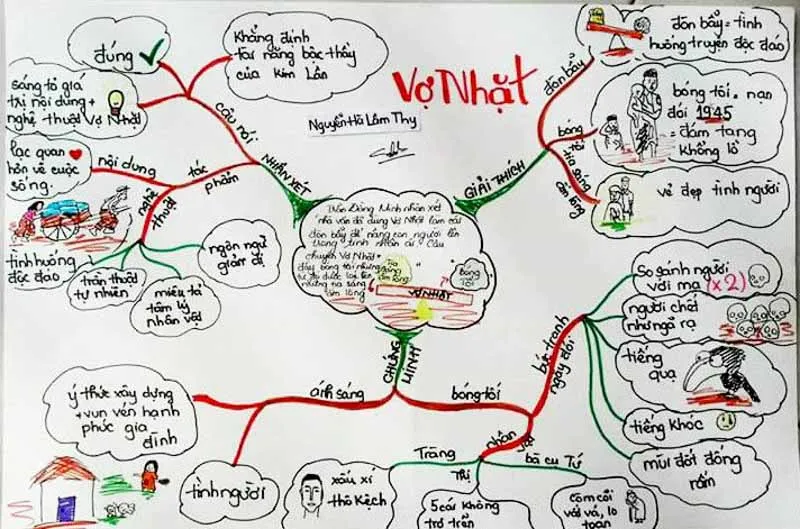 Vợ Nhặt
Nguyễn Hà Lâm Thy
đúng
Khẳng định
tài năng bậc thầy
của Kim Lân
sáng tỏ giá
trị nội dung +
nghệ thuật Vợ Nhặt
câu nói
NHẬN XÉT
lạc quan
hơn về cuộc
sống.
nội dung
tác
phẩm
nghệ
thuật
tình huống
độc đáo
trần thuật
tự nhiên
miêu tả
tâm lý
nhân vật
ngôn ngữ
giản dị
GIẢI THÍCH
đòn bẩy
đòn bẩy = tình
huống truyện độc đáo
bóng
tối
bóng tối = nạn
đói 1945
= đám tang
khổng lồ
tia sáng
ấm lòng
vẻ đẹp tình người
Trần Đăng nhận xét
"nhà văn đã dùng Vợ Nhặt làm cái
đòn bẩy để nâng con người lên
trong tình nhân ái. Câu
chuyện Vợ Nhặt
đầy bóng tối nhưng
từ đó được loé lên
những tia sáng
ấm lòng
Tia
sáng
ấm lòng
Bóng
tối
VỢ NHẶT
CHỨNG
MINH
ánh sáng
ý thức xây dựng
+ vun vén hạnh
phúc gia
đình
tình người
bóng tối
bức tranh
ngày đói
So sánh người
với ma (x2)
người chết
như ngả rạ
tiếng
quạ
tiếng khóc
mùi đốt đống
rấm
nhân
vật
Tràng
xấu xí
thô kệch
Thị
5 cái không
trơ trẽn
bà cụ Tứ
Còm cõi
vất vả, lo
toan